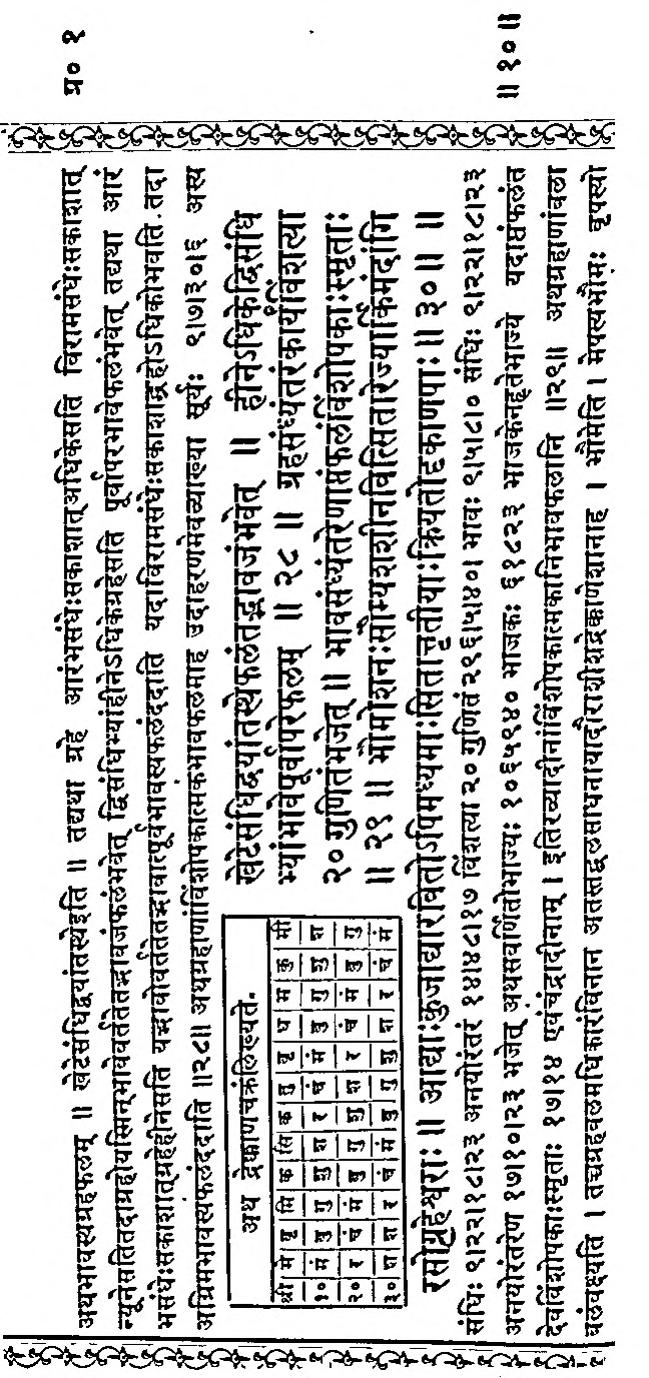 प्र० १
॥ १० ॥
अथभावस्यग्रहफलम् ॥ खेटेसंधिद्वयांतस्थेइति ॥ तद्यथा ग्रहे आरंभसंधेःसकाशात्अधिकेसति विरामसंधेःसकाशात्
न्यूनेसतितदाग्रहोयस्मिन्भावेवर्ततेतद्भावजंफलंभवेत् द्विसंधिभ्यांहीनेऽधिकेग्रहेसति पूर्वापरभावेफलंभवेत् तद्यथा आरं
भसंधेःसकाशात्ग्रहेहीनेसति यद्भावोवर्ततेतद्भावात्पूर्वभावस्यफलंददाति यदाविरामसंधेःसकाशाद्ग्रहोऽधिकोभवति तदा
अग्रिमभावस्यफलंददाति ॥२८॥ अथग्रहाणांविंशोपकात्मकभावफलमाह उदाहरणमेवव्याख्या सूर्यः ९।७।३०।६ अस्य
खेटेसंधिद्वयांतस्थेफलंतद्भावजंभवेत् ॥ हीनेऽधिकेद्विसंधि
भ्यांभावेपूर्वापरेफलम् ॥ २८ ॥ ग्रहसंध्यंतरंकार्यंविंशत्या
२० गुणितंभजेत् ॥ भावसंध्यंतरेणाप्तंफलंविंशोपकाःस्मृताः
॥ २९ ॥ भौमोशनःसौम्यशशीनवित्सितारेज्यार्किमंदांगि
रसोगृहेश्वराः ॥ आद्याःकुजाद्यारवितोऽपिमध्यमाःसितात्तृतीयाःक्रियतोदृकाणपाः ॥ ३० ॥ ॥
अथ द्रेष्काणचक्रंलिख्यते.
रा | मे | वृ | मि | क | सिं | क | तु | वृ | ध | म | कुं | मी
१० | मं | बु | गु | शु | श | र | चं | मं | बु | गु | शु | श
२० | र | चं | मं | बु | गु | शु | श | र | चं | मं | बु | गु
३० | शु | श | र | चं | मं | बु | गु | शु | श | र | चं | मं
संधिः ९।२२।१८।२३ अनयोरंतरं १४।४८।१७ विंशत्या २० गुणितं २९६।५।४० भावः ९।५।८।० संधिः ९।२२।१८।२३
अनयोरंतरेण १७।१०।२३ भजेत् अथसवर्णितोभाज्यः १०६५९४० भाजकः ६१८२३ भाजकेनहृतेभाज्ये यदाप्तंफलंत
देवविंशोपकाःस्मृताः १७।१४ एवंचंद्रादीनाम् । इतिरव्यादीनांविंशोपकात्मकानिभावफलानि ॥२९॥ अथग्रहाणांबला
बलंवक्ष्यति । तत्रग्रहबलमधिकारंविनान अतस्तद्बलसाधनायादौराशीशद्रेष्काणेशानाह । भौमेति । मेषस्यभौमः वृषस्यो